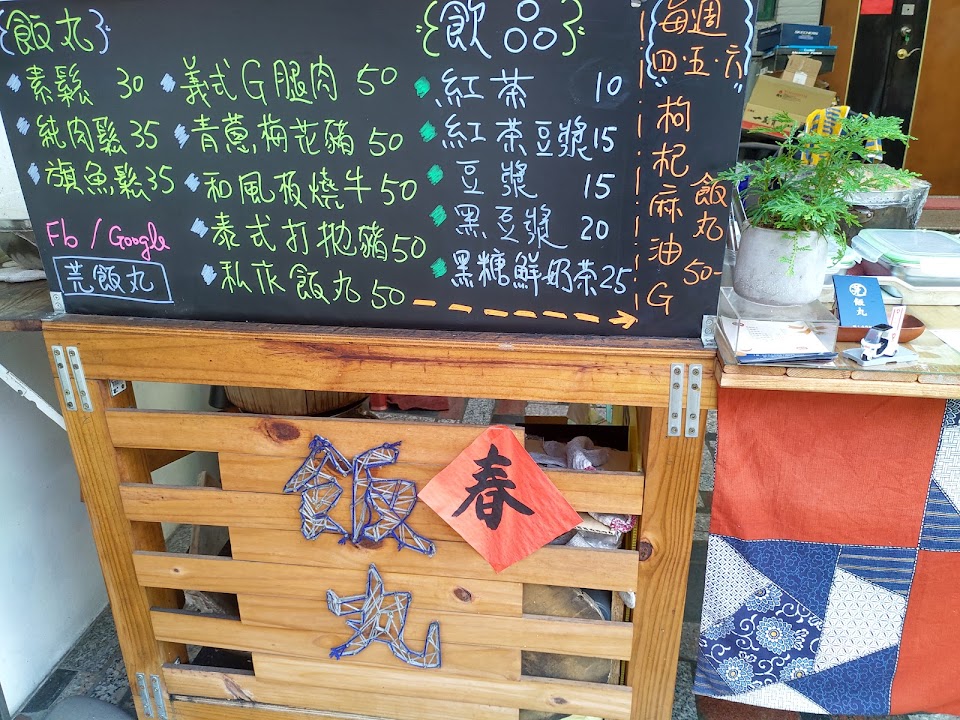 飯丸
素鬆 30
純肉鬆 35
旗魚鬆 35
Fb / Google
荒飯丸
義式G腿肉 50
青蔥梅花豬 50
和風板燒牛 50
泰式打拋豬 50
私床飯丸 50
飲品
紅茶 10
紅茶豆漿 15
豆漿 15
黑豆漿 20
黑糖鮮奶茶 25
每週
四·五·六
枸杞麻油G
飯丸
50-
飯丸
春
飯丸